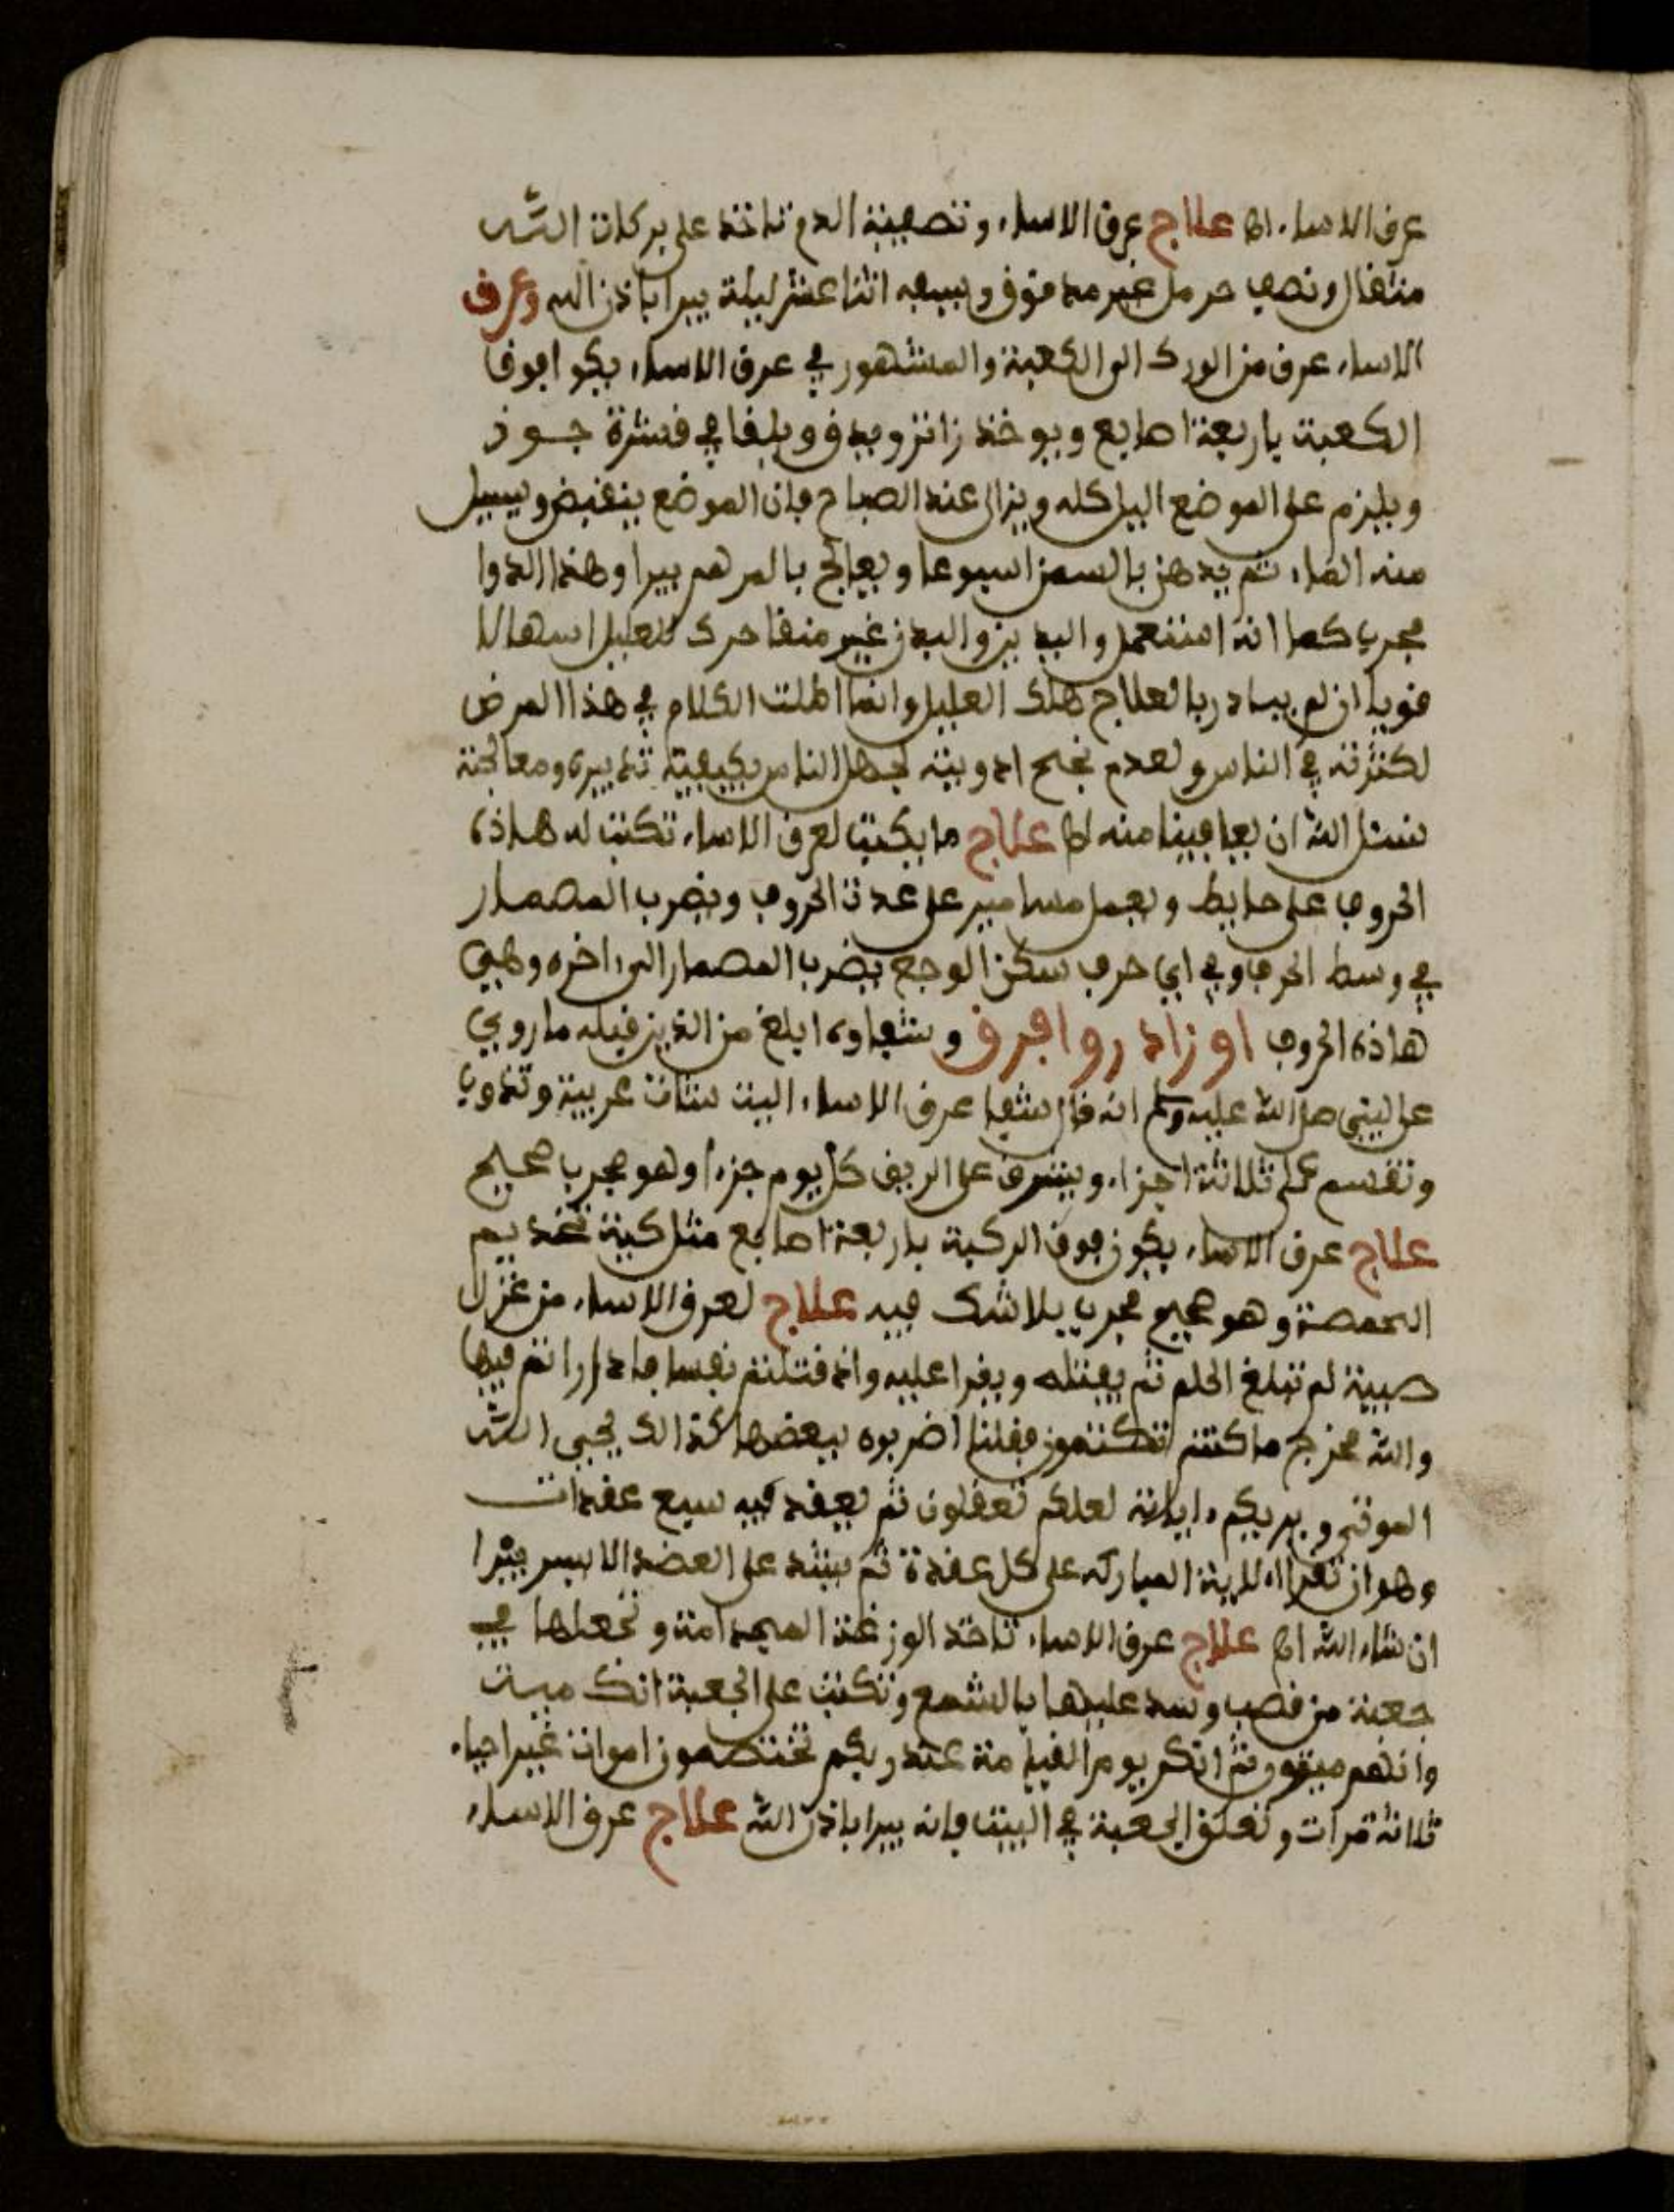 عرق الاسا، اه علاج عرق الاسا، وتصفية الدم تاخذ على بركات الله
مثقال ونصف حرمل غير مدقوق ويسفه اثنا عشر ليلة يبرا باذن الله وعرق
الاسا، عرق من الورك الى الكعبة والمشهور في عرق الاسا، يكوا فوق
الكعبة باربعة اصابع ويوخذ زانزو يدق ويلقا في قشرة جوز
ويلزم على الموضع اليل كله ويزال عند الصباح فان الموضع ينغيض ويسيل
منه الماء، ثم يدهن بالسمن اسبوعا ويعالج بالمرهم يبرا وهذا الدوا
مجرب كما انه استعمل والبدين والبدن غير منقا حرك للعليل اسهالا
قويا ان لم يبادر بالعلاج هلك العليل وانما اطلت الكلام في هذا المرض
لكثرته في الناس ولعدم نجح ادويته لجهل الناس بكيفية تدبيره ومعالجته
نسئل الله ان يعافينا منه اه علاج ما يكتب لعرق الاسا، تكتب له هاذه
الحروف على حايط وتعمل مسامير على عدة الحروف ويضرب المصمار
في وسط الحرف وفي اي حرف سكن الوجع يضرب المصمار الى ءاخره وهي
هاذه الحروف اوزاد رواجرف وشفاوه ابلغ من الذين قبله ما روي
عن النبي صلى الله عليه وسلم انه قال شفا عرق الاسا، اليت شات عربية وتذوب
وتقسم على ثلاثة اجزاء، ويشرق على الريق كل يوم جزءا وهو مجرب صحيح
علاج عرق الاسا، يكون فوق الركبة باربعة اصابع مثل كية تخديم
الحمصة وهو صحيح مجرب بلا شك فيه علاج لعرق الاسا، من غزل
صبية لم تبلغ الحلم ثم يفتله ويقرا عليه واذ قتلتم نفسا فادارراتم فيها
والله مخرج ما كنتم تكتمون فقلنا اضربوه ببعضها كذالك يحيى الله
الموتى ويريكم ءاياته لعلكم تعقلون ثم يعقد فيه سبع عقدات
وهو ان تقرا الاية المباركه على كل عقدة ثم يشد على العضد الايسر يبرا
ان شاء الله اه علاج عرق الاسا، تاخذ الوزغة الميمدامة وتجعلها في
جعبة من قصب وسد عليها بالشمع وتكتب على الجعبة انك ميت
وانهم ميتون ثم انكم يوم القيامة عند ربكم تختصمون اموات غير احياء
ثلاثة مرات وتعلق الجعبة في البيت فانه يبرا باذن الله علاج عرق الاسا،